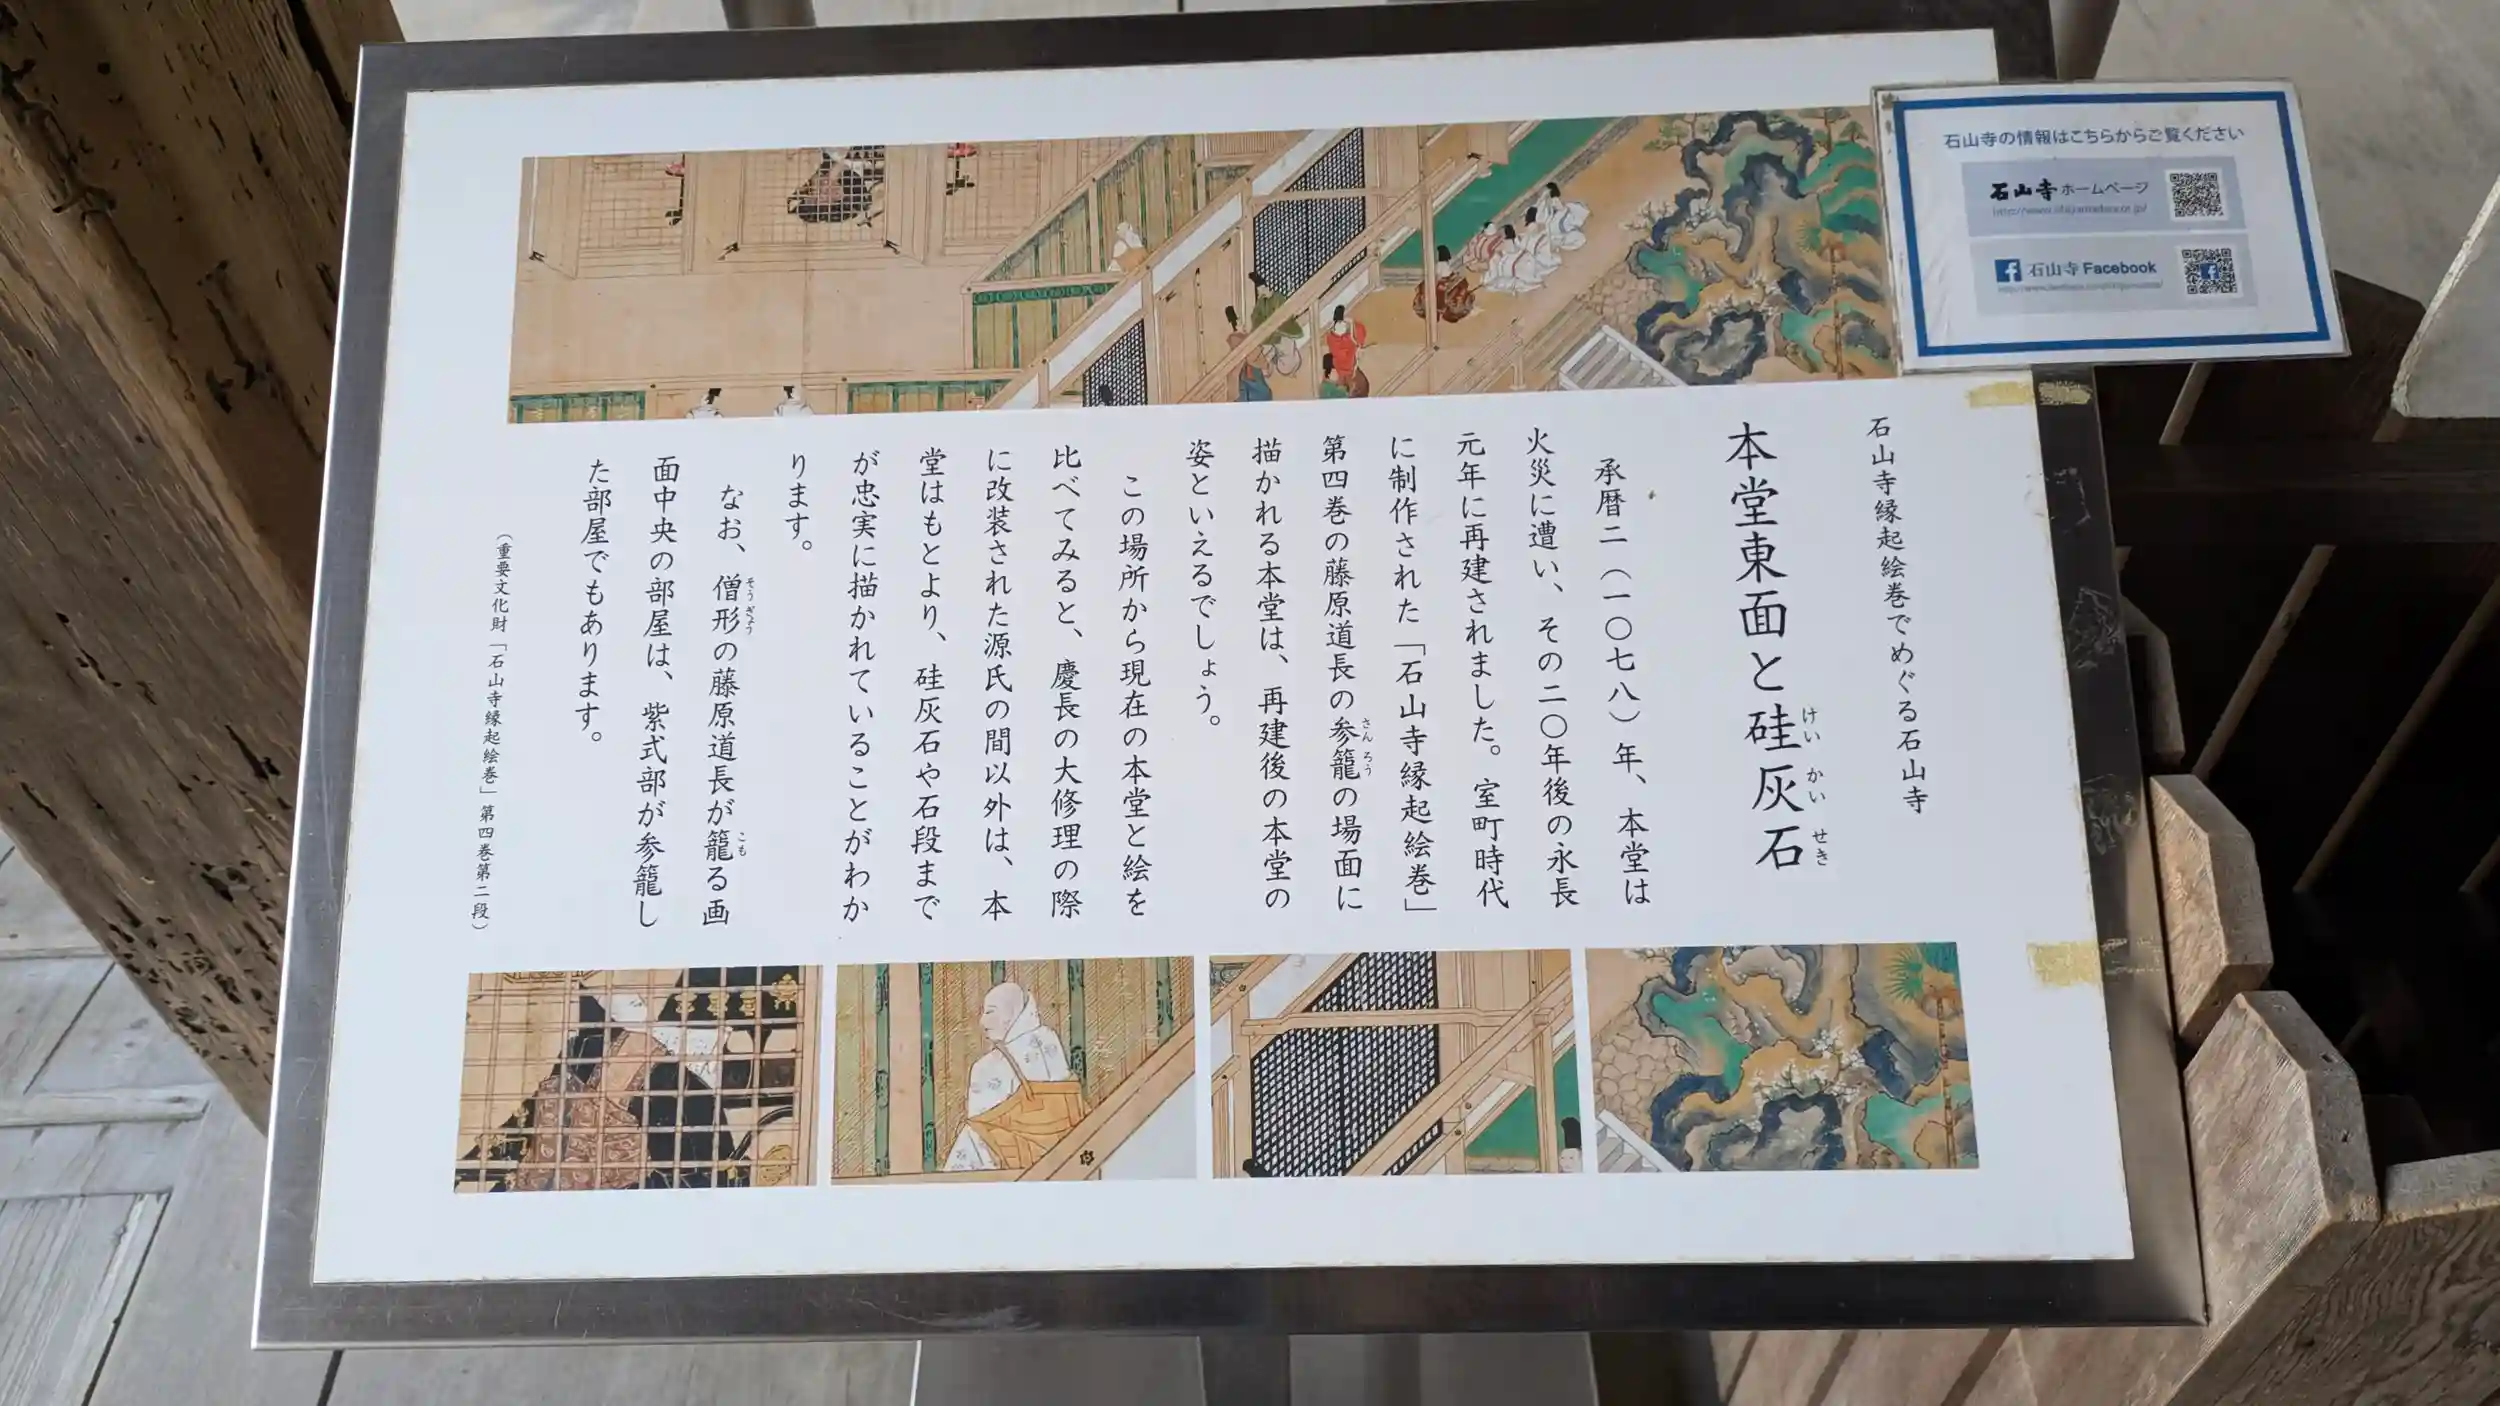 石山寺縁起絵巻でめぐる石山寺
本堂東面と硅灰石
けい かい せき
承暦二（一〇七八）年、本堂は
火災に遭い、その二〇年後の永長
元年に再建されました。室町時代
に制作された「石山寺縁起絵巻」
第四巻の藤原道長の参籠の場面に
さん ろう
描かれる本堂は、再建後の本堂の
姿といえるでしょう。
この場所から現在の本堂と絵を
比べてみると、慶長の大修理の際
に改装された源氏の間以外は、本
堂はもとより、硅灰石や石段まで
が忠実に描かれていることがわか
ります。
なお、僧形の藤原道長が籠る画
そうぎょう
こも
面中央の部屋は、紫式部が参籠し
た部屋でもあります。
（重要文化財「石山寺縁起絵巻」第四巻第二段）
石山寺の情報はこちらからご覧ください
石山寺ホームページ
石山寺Facebook